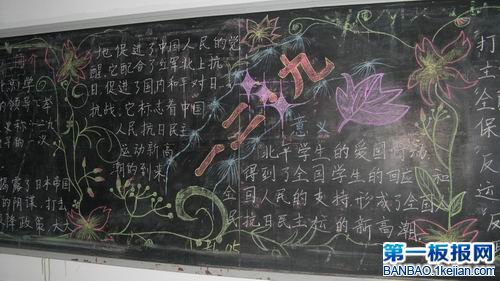 的领导下举
史称一二九
的一次
揭露了日本帝国
的阴谋,打击
投降政策,大大
他促进了中国人民的觉
醒,它配合了红军北上抗
日,促进了国内和平对日
抗战,它标志着中国
人民抗日民主
运动新高
潮的到来
一二·九
意义
北平学生的爱国行动,
得到了全国学生的回应和
全国人民的支持,形成了全国人
民抗日民主运的新高潮
打
全
保
反
远
第一板报网
BANBAO.1kejian.com